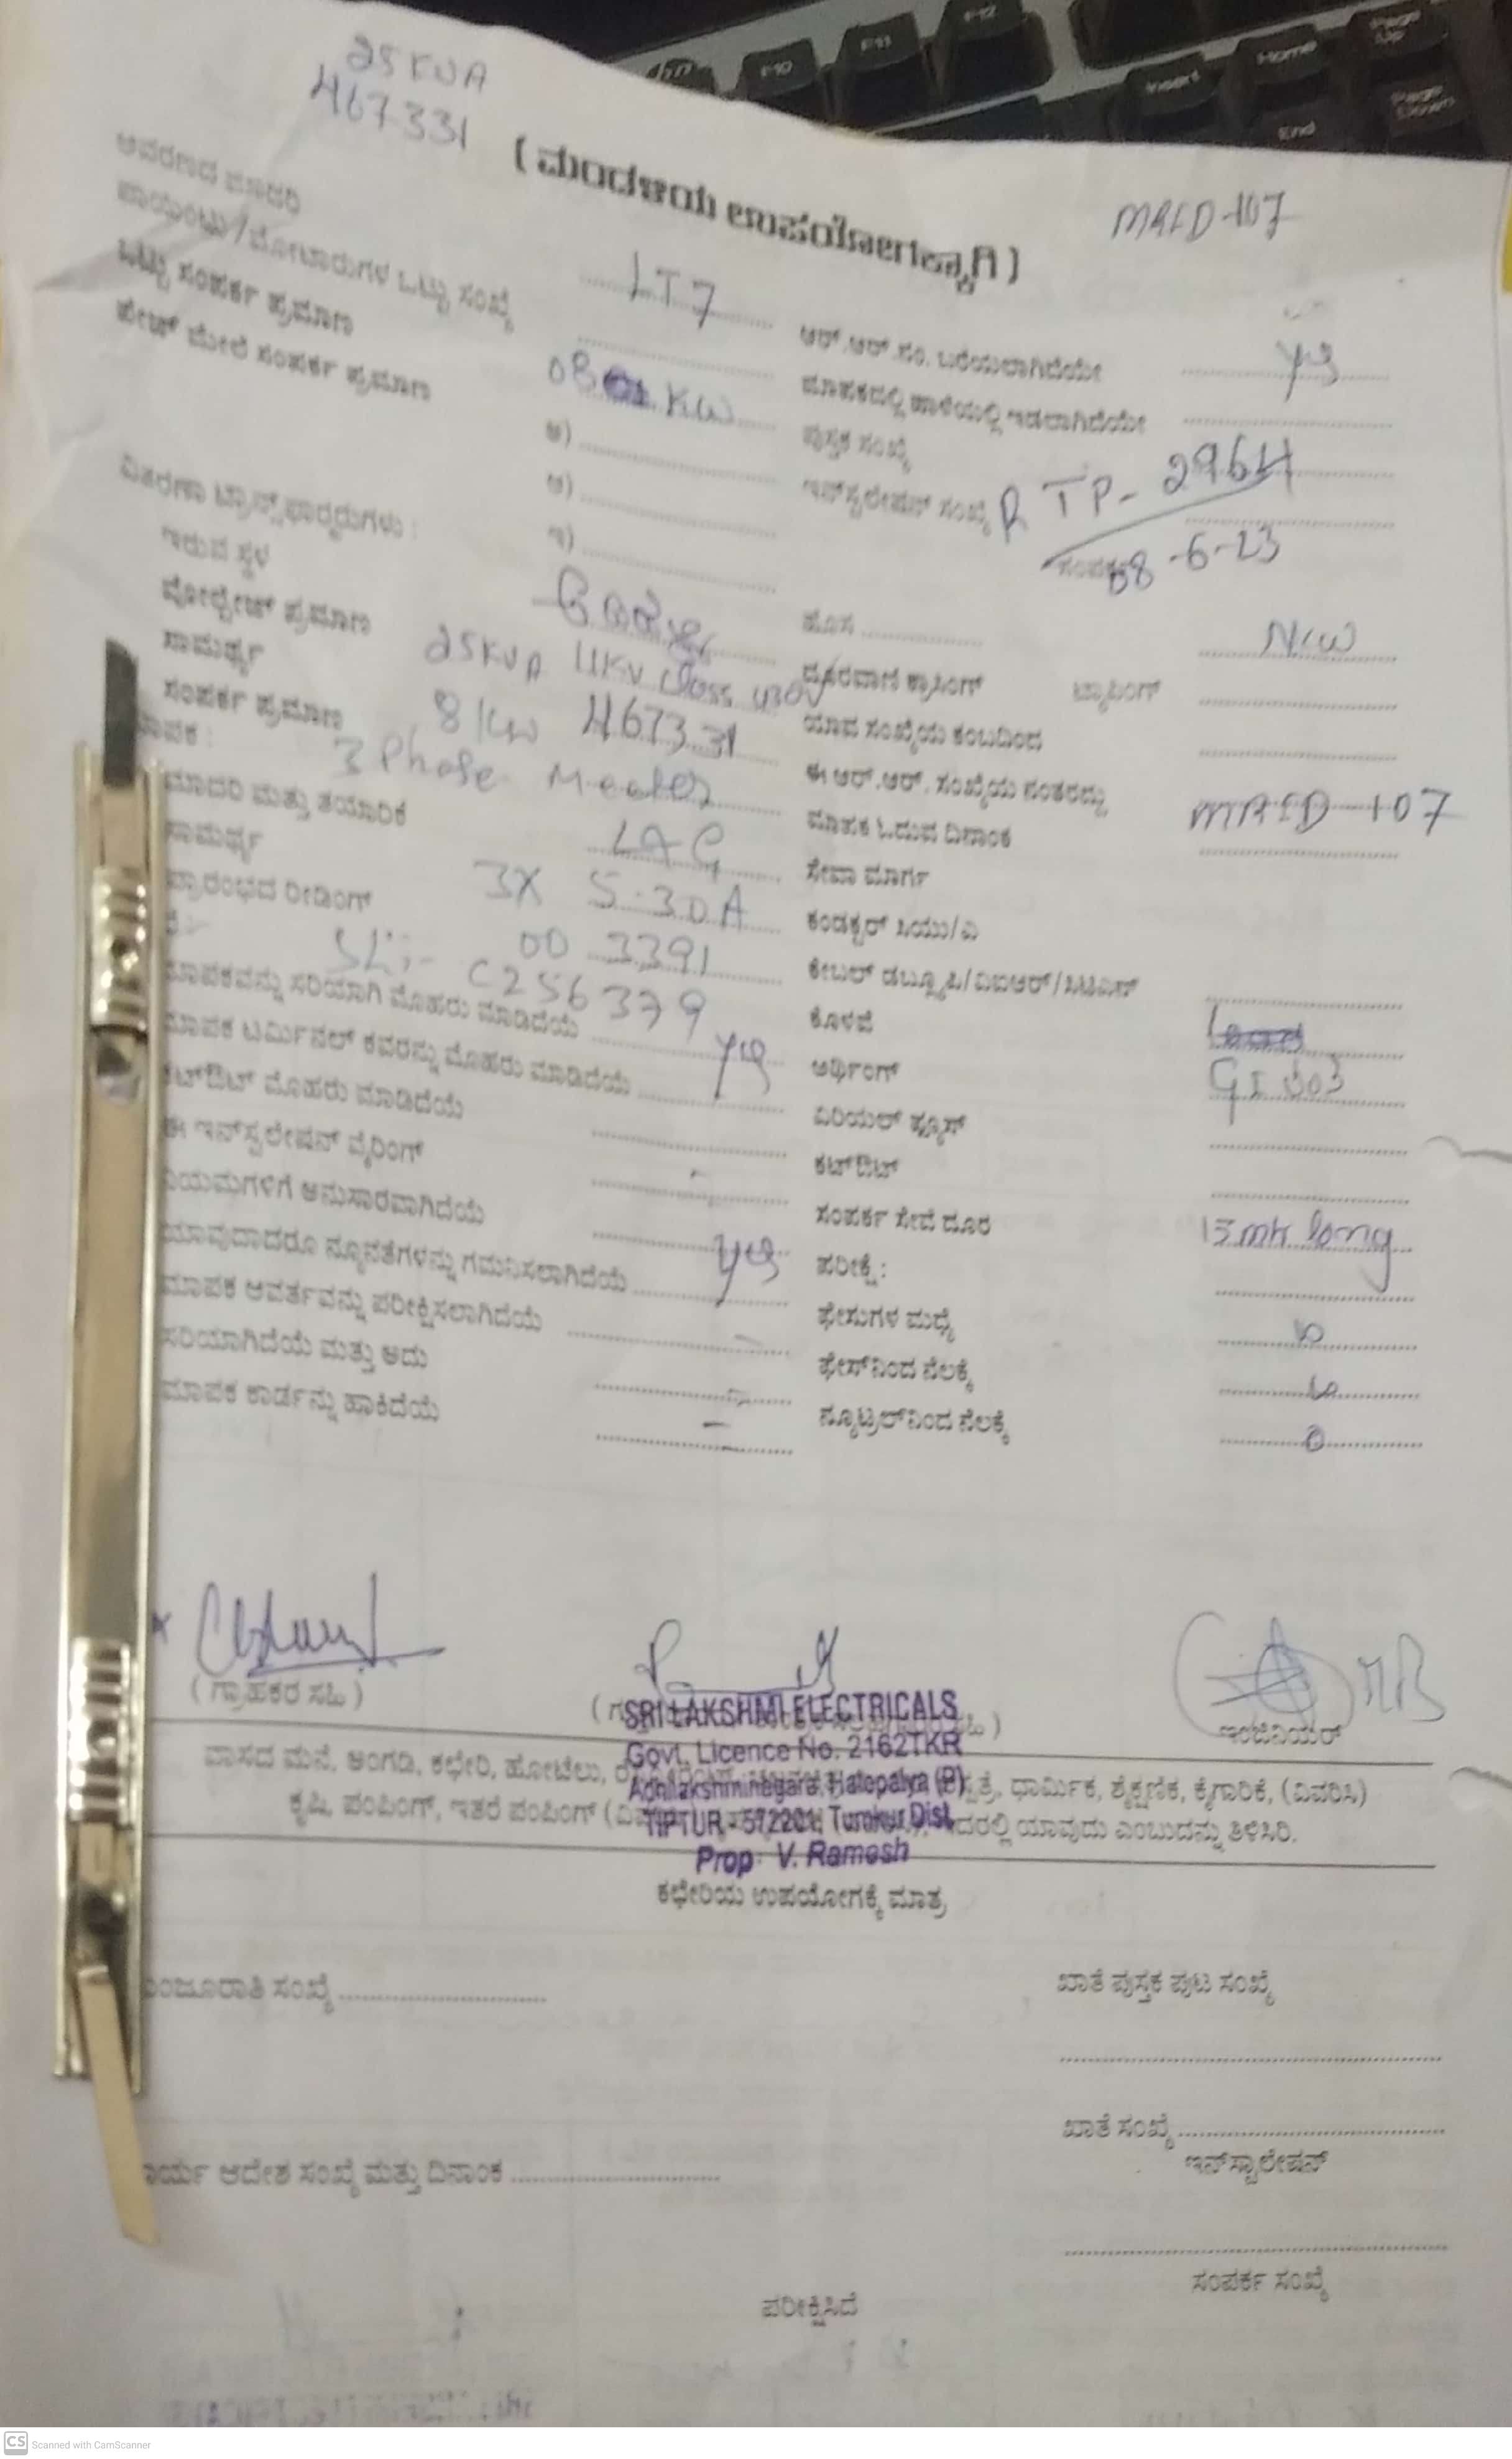 25 KVA
467331
( ಮಂಡಳಿಯ ಉಪಯೋಗಕ್ಕಾಗಿ )
MRID-107
ಆವರಣದ ಮಾದರಿ LT7
ಪಾಯಿಂಟು/ಮೋಟಾರುಗಳ ಒಟ್ಟು ಸಂಖ್ಯೆ
ಒಟ್ಟು ಸಂಪರ್ಕ ಪ್ರಮಾಣ 08 KW
ಹೇಚ್ ಮೇಲೆ ಸಂಪರ್ಕ ಪ್ರಮಾಣ ಅ)
ಆ)
ಇ)
ವಿತರಣಾ ಟ್ರಾನ್ಸ್‌ಫಾರ್ಮರುಗಳು :
ಇರುವ ಸ್ಥಳ
ವೋಲ್ಟೇಜ್ ಪ್ರಮಾಣ 25KVA 11KV class 430V
ಸಾಮರ್ಥ್ಯ 8 KW 467331
ಸಂಪರ್ಕ ಪ್ರಮಾಣ 3 Phase Meater
ಮಾಪಕ :
ಮಾದರಿ ಮತ್ತು ತಯಾರಿಕೆ L&G
ಸಾಮರ್ಥ್ಯ 3X 5-30A
ಪ್ರಾರಂಭದ ರೀಡಿಂಗ್ 00 3391
SL:- C256379
ಮಾಪಕವನ್ನು ಸರಿಯಾಗಿ ಮೊಹರು ಮಾಡಿದೆಯೆ
ಮಾಪಕ ಟರ್ಮಿನಲ್ ಕವರನ್ನು ಮೊಹರು ಮಾಡಿದೆಯೆ yes
ಕಟ್‌ಔಟ್ ಮೊಹರು ಮಾಡಿದೆಯೆ
ಈ ಇನ್‌ಸ್ಟಲೇಷನ್ ವೈರಿಂಗ್ -
ನಿಯಮಗಳಿಗೆ ಅನುಸಾರವಾಗಿದೆಯೆ
ಯಾವುದಾದರೂ ನ್ಯೂನತೆಗಳನ್ನು ಗಮನಿಸಲಾಗಿದೆಯೆ yes
ಮಾಪಕ ಆವರ್ತವನ್ನು ಪರೀಕ್ಷಿಸಲಾಗಿದೆಯೆ -
ಸರಿಯಾಗಿದೆಯೆ ಮತ್ತು ಅದು -
ಮಾಪಕ ಕಾರ್ಡನ್ನು ಹಾಕಿದೆಯೆ -
ಆರ್.ಆರ್.ಸಂ. ಬರೆಯಲಾಗಿದೆಯೇ yes
ಮಾಪಕದಲ್ಲಿ ಹಾಳೆಯಲ್ಲಿ ಇಡಲಾಗಿದೆಯೇ
ಪುಸ್ತಕ ಸಂಖ್ಯೆ
ಇನ್‌ಸ್ಟಲೇಷನ್ ಸಂಖ್ಯೆ R TP- 2964
08-6-23
ಹೊಸ New
ದೂರವಾಣಿ ಕ್ರಾಸಿಂಗ್ ಟ್ಯಾಪಿಂಗ್
ಯಾವ ಸಂಖ್ಯೆಯ ಕಂಬದಿಂದ
ಈ ಆರ್.ಆರ್. ಸಂಖ್ಯೆಯ ನಂತರದ್ದು
ಮಾಪಕ ಓದುವ ದಿನಾಂಕ MRID-107
ಸೇವಾ ಮಾರ್ಗ
ಕಂಡಕ್ಟರ್ ಸಿಯು/ಎ
ಕೇಬಲ್ ಡಬ್ಲ್ಯೂಪಿ/ವಿಐಆರ್/ಸಿಟಿಎಸ್
ಕೊಳವೆ
ಅರ್ಥಿಂಗ್ GI
ಏರಿಯಲ್ ಫ್ಯೂಸ್
ಕಟ್‌ಔಟ್
ಸಂಪರ್ಕ ಸೇವೆ ದೂರ 15 mtr long
ಪರೀಕ್ಷೆ :
ಫೇಸುಗಳ ಮಧ್ಯೆ
ಫೇಸ್‌ನಿಂದ ನೆಲಕ್ಕೆ
ನ್ಯೂಟ್ರಲ್‌ನಿಂದ ನೆಲಕ್ಕೆ 0
( ಗ್ರಾಹಕರ ಸಹಿ )
ಇಂಜಿನಿಯರ್
SRI LAKSHMI ELECTRICALS
Govt. Licence No. 2162TKR
Adhilakshminagara. Halepalya (P)
TIPTUR - 572201, Tumkur Dist.
Prop: V. Ramesh
ವಾಸದ ಮನೆ, ಅಂಗಡಿ, ಕಛೇರಿ, ಹೋಟೆಲು, ಧಾರ್ಮಿಕ, ಶೈಕ್ಷಣಿಕ, ಕೈಗಾರಿಕೆ, (ವಿವರಿಸಿ)
ಕೃಷಿ, ಪಂಪಿಂಗ್, ಇತರೆ ಪಂಪಿಂಗ್ ಇದರಲ್ಲಿ ಯಾವುದು ಎಂಬುದನ್ನು ತಿಳಿಸಿರಿ.
ಕಛೇರಿಯ ಉಪಯೋಗಕ್ಕೆ ಮಾತ್ರ
ಮಂಜೂರಾತಿ ಸಂಖ್ಯೆ
ಖಾತೆ ಪುಸ್ತಕ ಪುಟ ಸಂಖ್ಯೆ
ಖಾತೆ ಸಂಖ್ಯೆ
ಇನ್‌ಸ್ಟಾಲೇಷನ್
ಕಾರ್ಯ ಆದೇಶ ಸಂಖ್ಯೆ ಮತ್ತು ದಿನಾಂಕ
ಸಂಪರ್ಕ ಸಂಖ್ಯೆ
ಪರೀಕ್ಷಿಸಿದೆ
CS Scanned with CamScanner